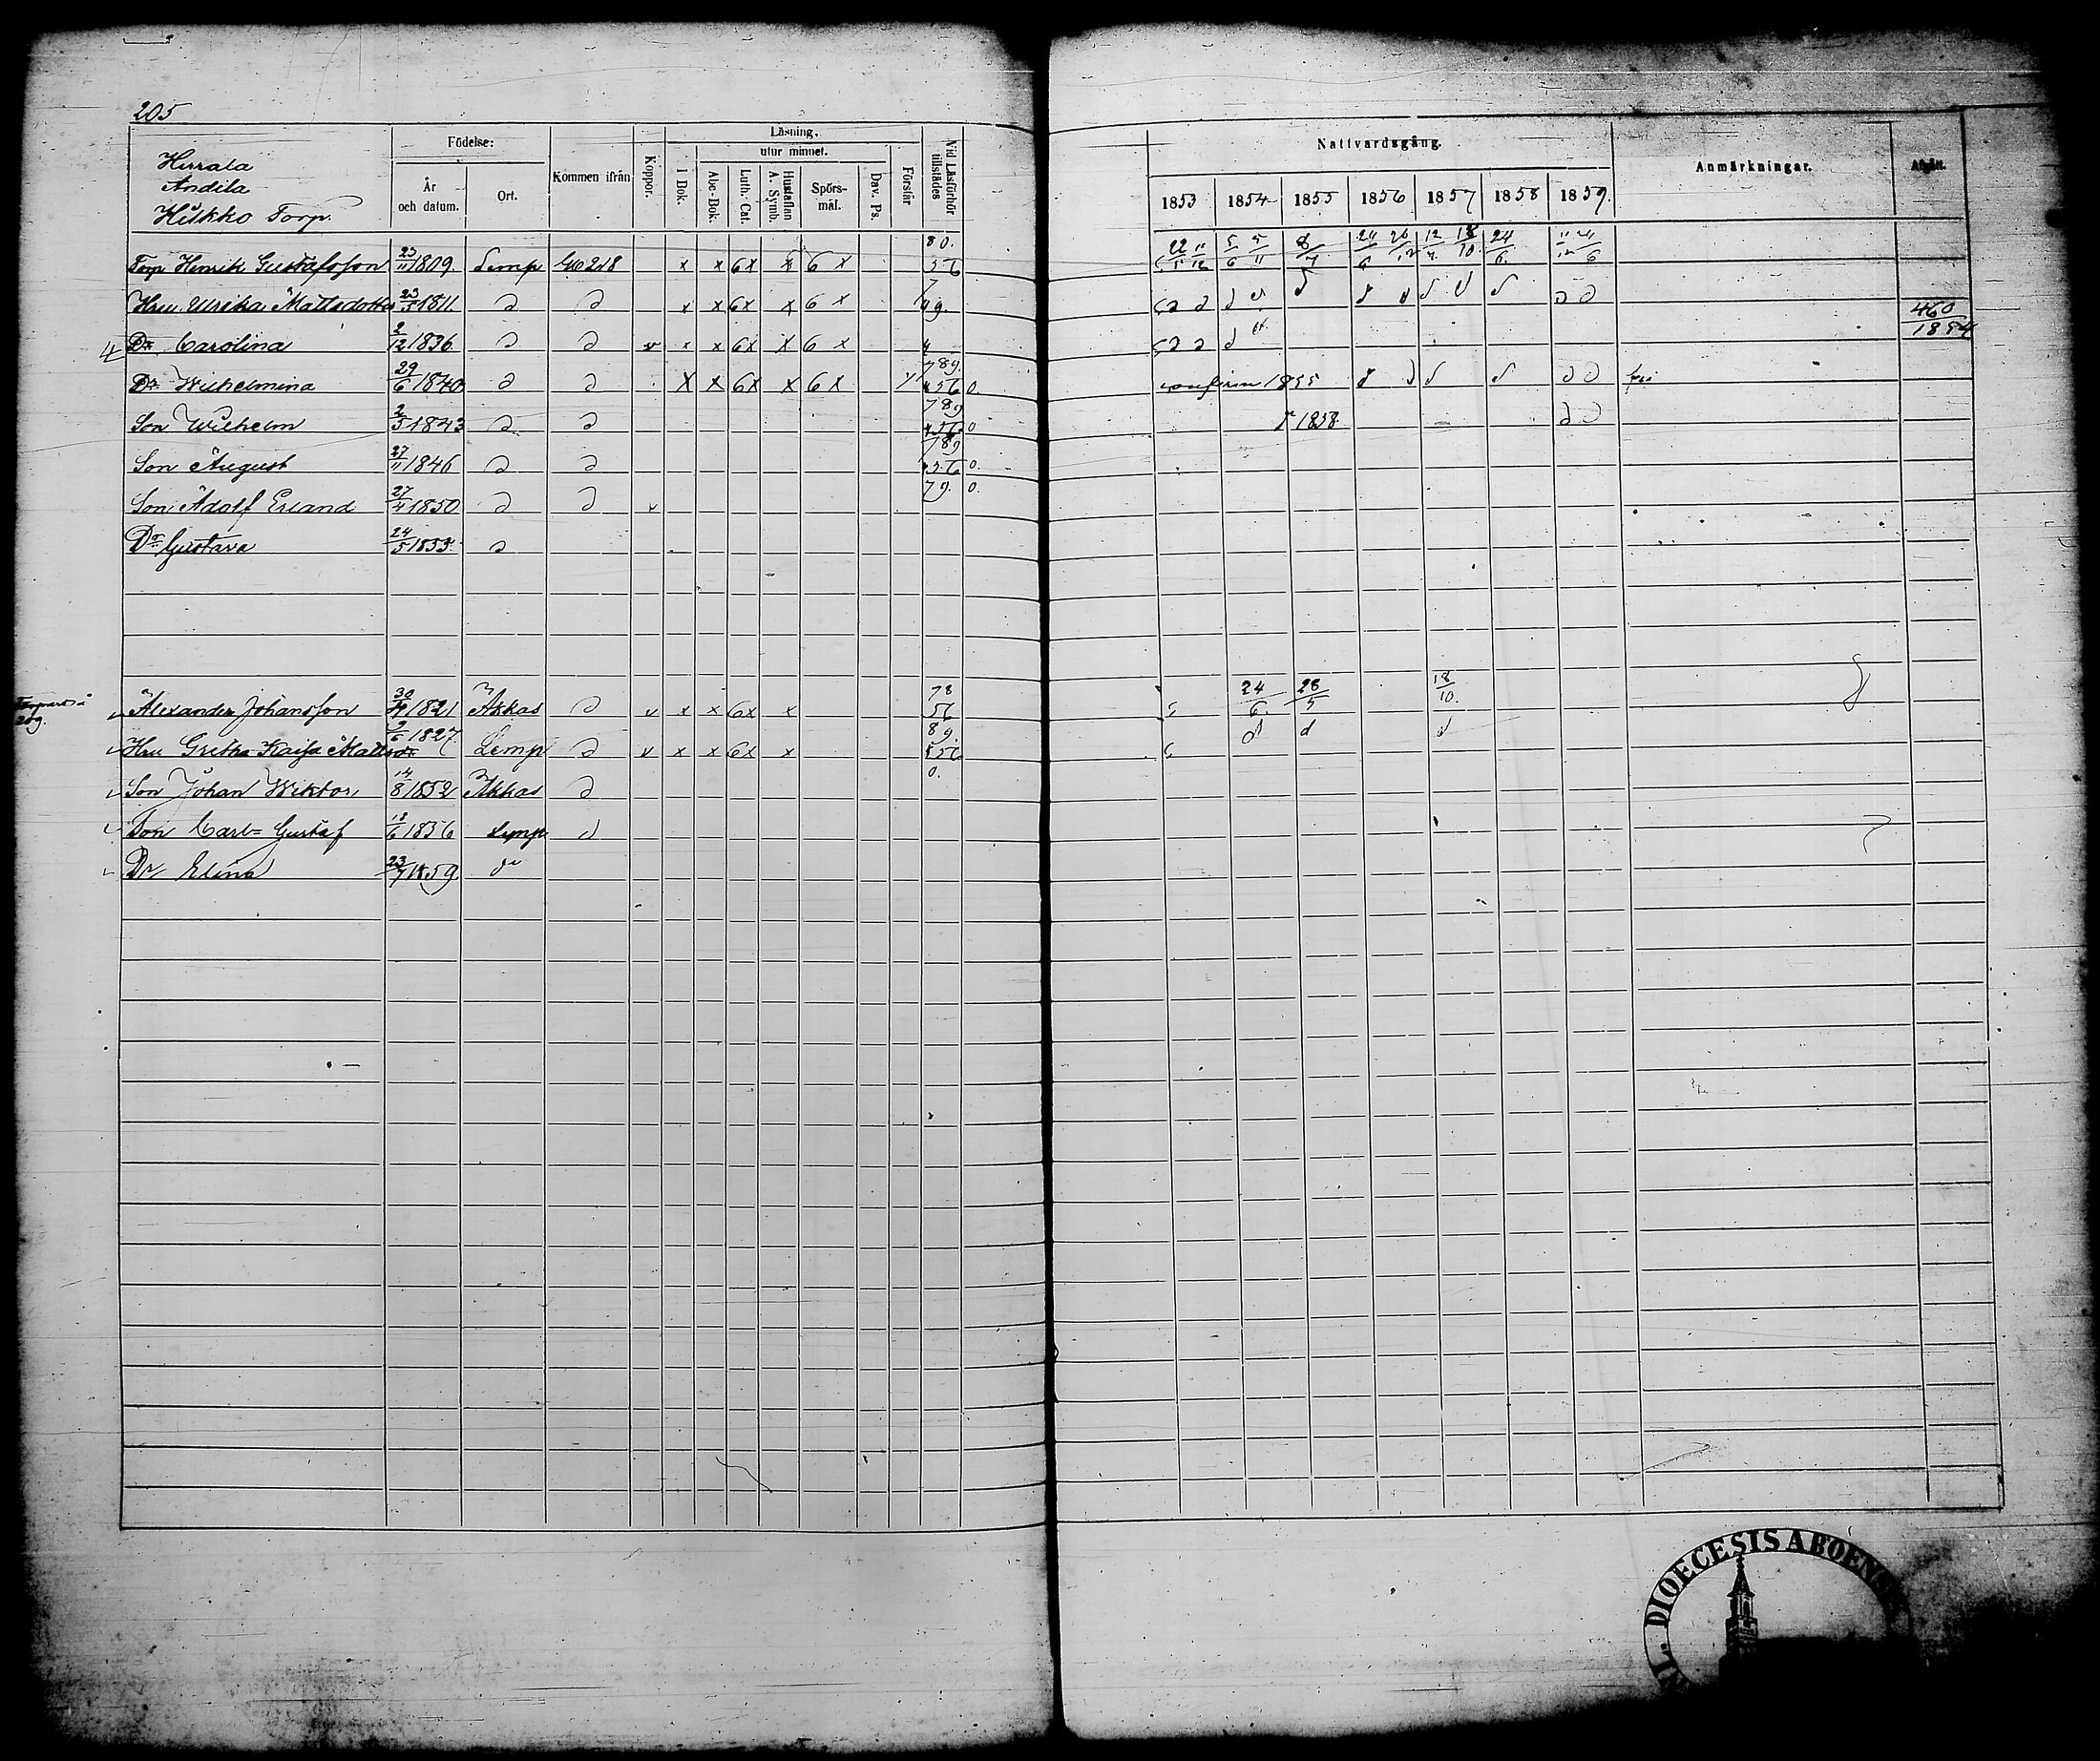 205
Herrala
Andila
Hukko Torp.
Födelse: År och datum. Ort.
Kommen ifrån
Koppor.
Läsning.
I Bok.
utur minnet.
Abc-Bok. Luth. Cat. Hustaflan A. Symb. Spörsmål. Dav. Ps.
Förstår
Vid Läsförhör tillstädes
Nattvardsgång.
1853 1854 1855 1856 1857 1858 1859.
Anmärkningar.
Afgått.
Torp. Henrik Gustafsson 23/11 1809. Lemp x x 6x x 6 x 80. 56 22/5 11/12 5/6 5/11 8/7 24/6 26/12 12/7 18/10 24/6 11/12 24/6
Hru. Ulrika Mattsdotter 23/5 1811. x x 6x x 6 x 7 9.
4 Dr. Carolina 2/12 1836 v x x 6x x 6 x 4 460/1854
Dr. Wilhelmina 29/6 1840 x x 6x x 6x 789. 56 0. confirm 1855
Son Wilhelm 2/5 1843 789 56. 0 1858.
Son August 27/11 1846 789 56 0.
Son Adolf Erland 27/4 1850 v 79. 0.
Dr. Gustava 24/5 1833.
209.
Alexander Johansson 30/4 1821 Akkas v x x 6x x 78 56 24/6 28/5 18/10.
Hru Gretha Kaisa Mattsdr 2/6 1827 Lemp v x x 6x x 89. 56
Son Johan Wiktor 14/8 1852 Akkas 0.
Son Carl=Gustaf 18/6 1856 Lemp
Dr Elina 23/7 1859 do
DIOECESIS ABOENS